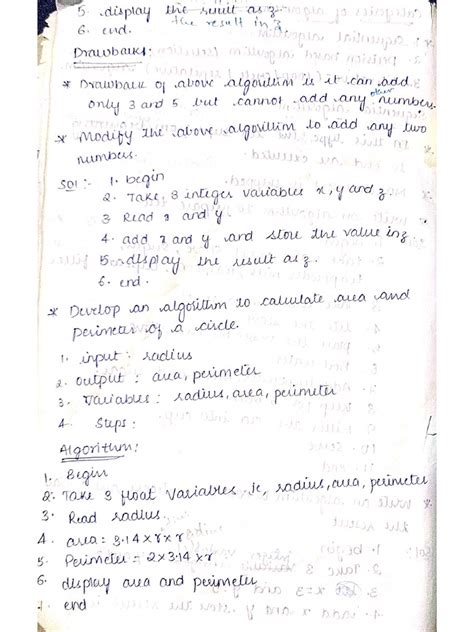 5. display the result as z.
the result in z
6. end.
Drawbacks:
* Drawback of above algorithm is it can add
only 3 and 5 but cannot add any other numbers.
* Modify the above algorithm to add any two
numbers.
Sol:- 1. begin
2. Take, 3 integer variables x, y and z.
3 Read x and y
4. add x and y and store the value in z.
5. display the result as z.
6. end.
* Develop an algorithm to calculate area and
perimeter of a circle.
1. input: radius
2. output: area, perimeter
3. Variables: radius, area, perimeter
4. Steps:
Algorithm:
1. Begin
2. Take 3 float variables ie, radius, area, perimeter
3. Read radius.
4. area = 3.14 x r x r
5. Perimeter = 2x3.14 x r
6. display area and perimeter
7. end